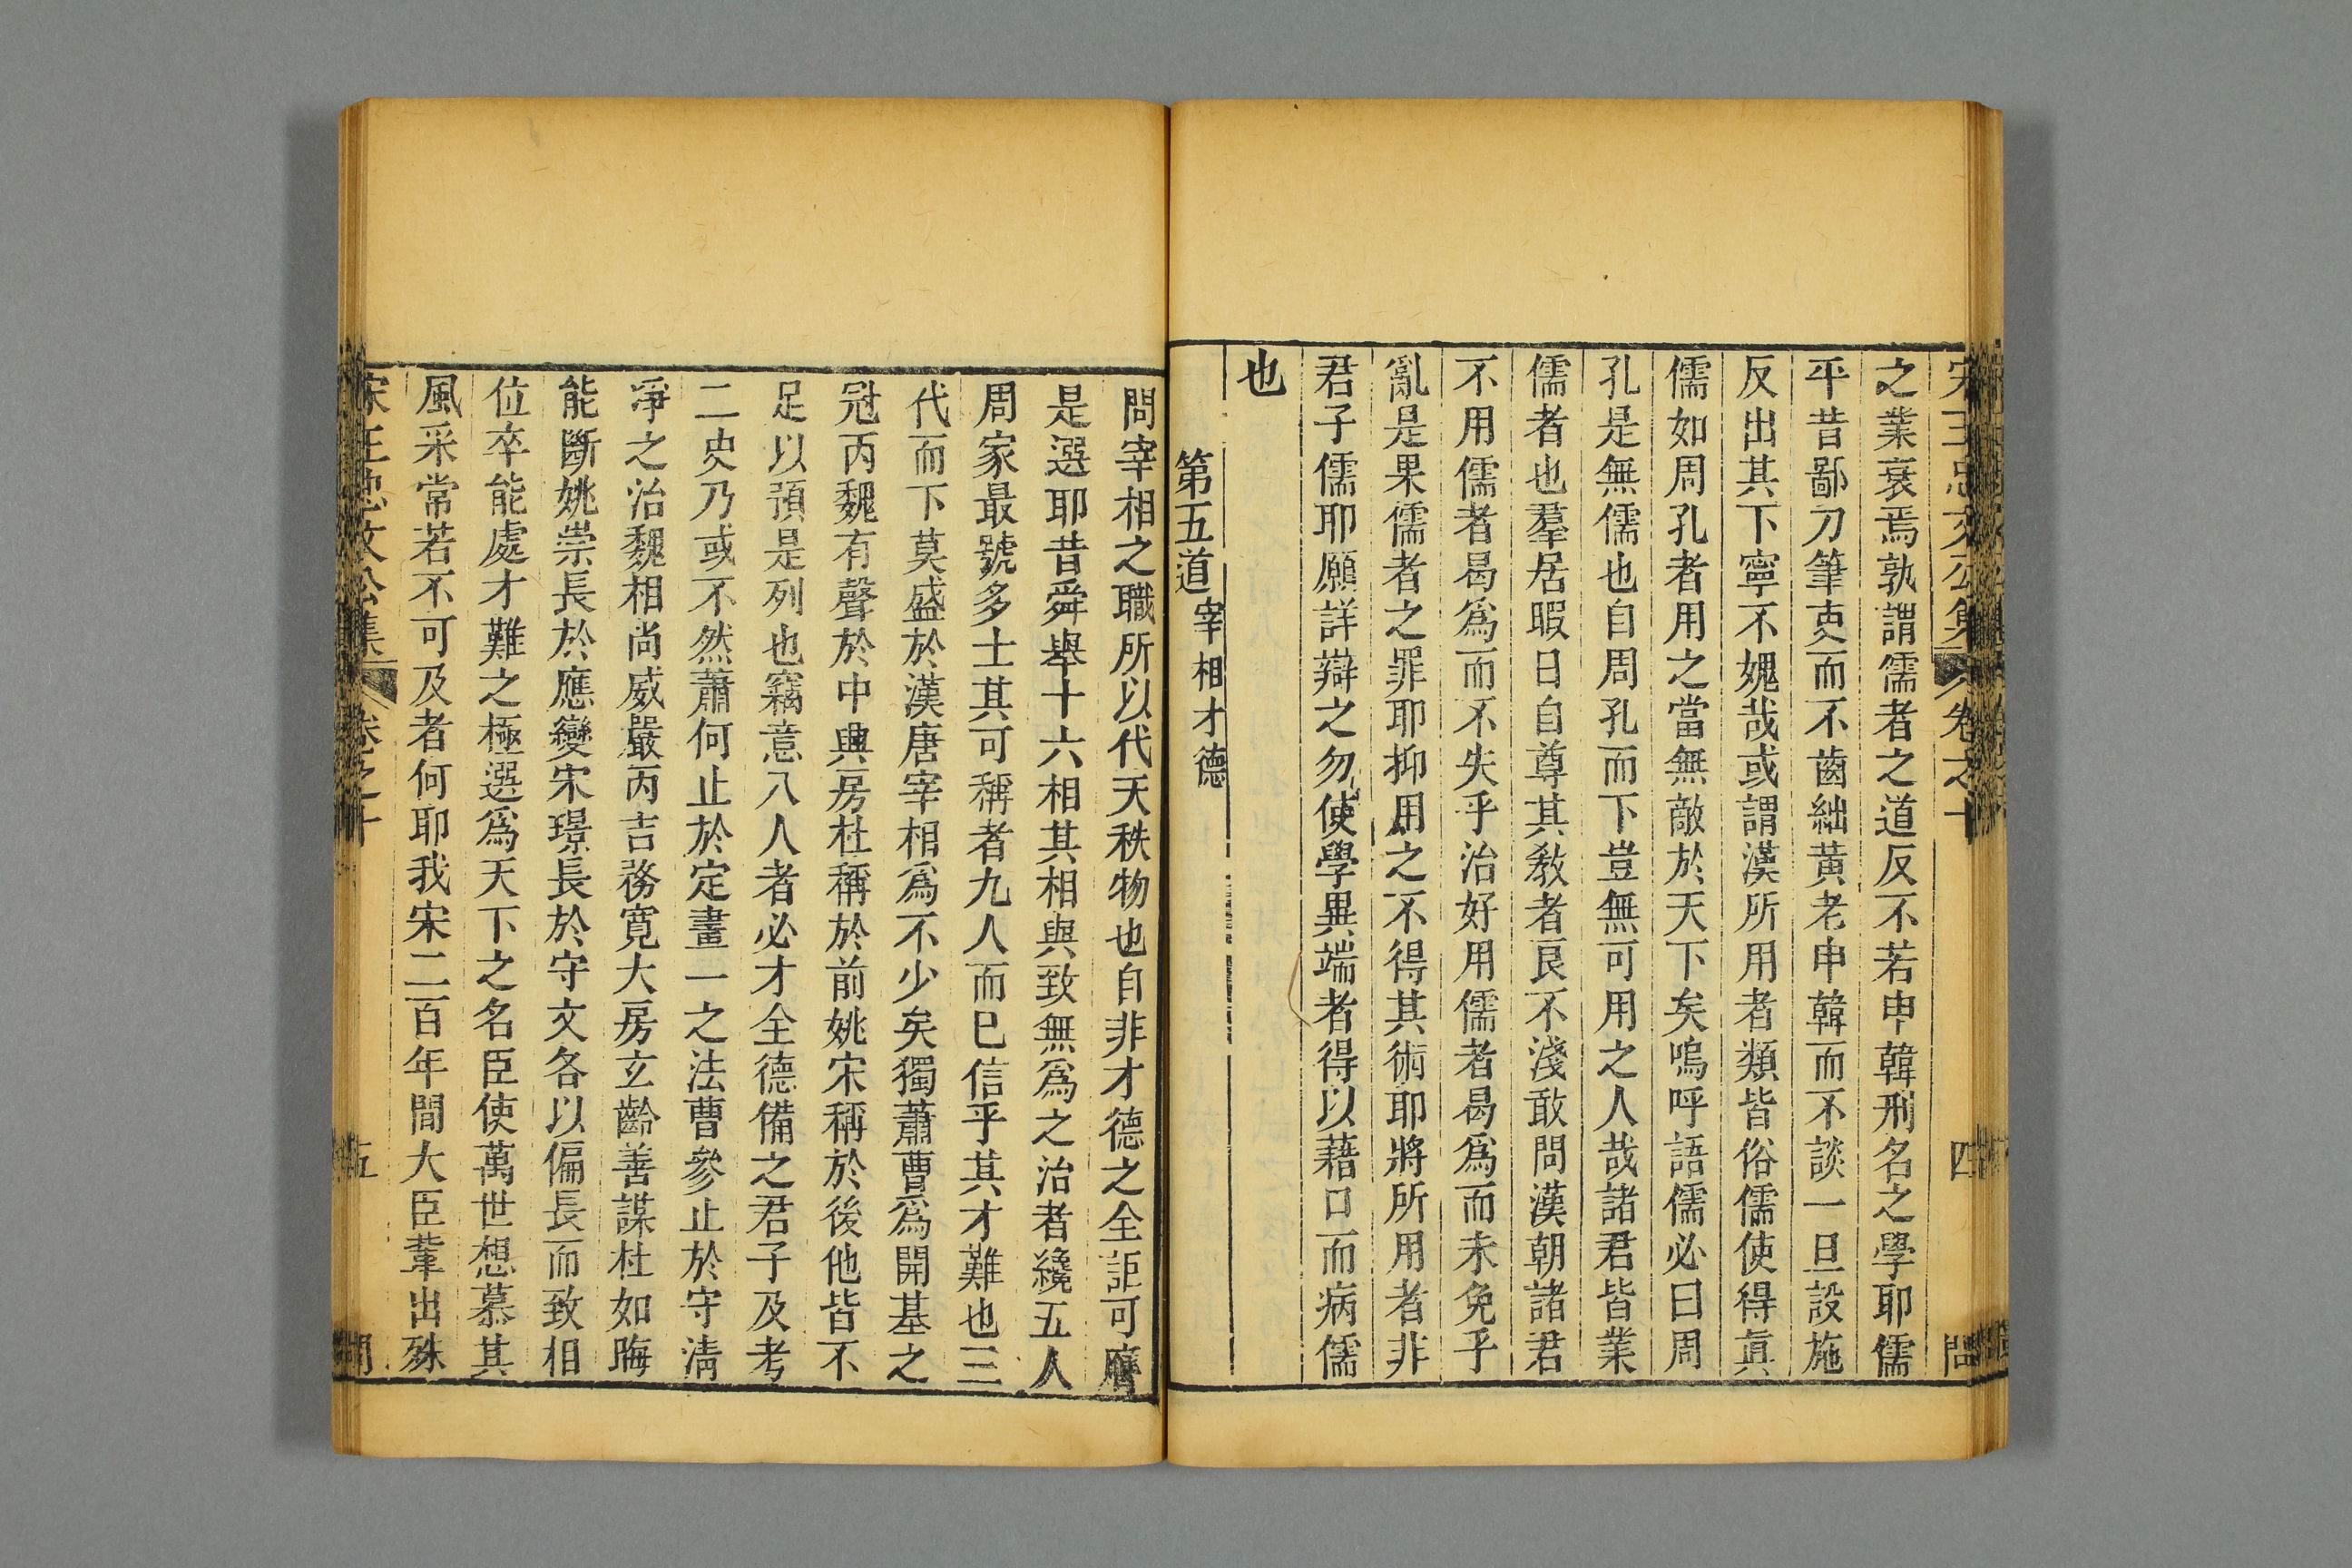 宋王忠文公集 卷之十 四 問
之業衰焉孰謂儒者之道反不若申韓刑名之學耶儒
平昔鄙刀筆吏而不齒絀黃老申韓而不談一旦設施
反出其下寧不媿哉或謂漢所用者類皆俗儒使得眞
儒如周孔者用之當無敵於天下矣嗚呼語儒必曰周
孔是無儒也自周孔而下豈無可用之人哉諸君皆業
儒者也羣居暇日自尊其教者良不淺敢問漢朝諸君
不用儒者曷爲而不失乎治好用儒者曷爲而未免乎
亂是果儒者之罪耶抑用之不得其術耶將所用者非
君子儒耶願詳辯之勿使學異端者得以藉口而病儒
也
第五道 宰相才德
問宰相之職所以代天秩物也自非才德之全詎可膺
是選耶昔舜舉十六相其相與致無爲之治者纔五人
周家最號多士其可稱者九人而已信乎其才難也三
代而下莫盛於漢唐宰相爲不少矣獨蕭曹爲開基之
冠丙魏有聲於中興房杜稱於前姚宋稱於後他皆不
足以預是列也竊意八人者必才全德備之君子及考
二史乃或不然蕭何止於定畫一之法曹參止於守清
凈之治魏相尚威嚴丙吉務寬大房玄齡善謀杜如晦
能斷姚崇長於應變宋璟長於守文各以偏長而致相
位卒能處才難之極選爲天下之名臣使萬世想慕其
風采常若不可及者何耶我宋二百年間大臣輩出殊
宋王忠文公集 卷之十 五 問